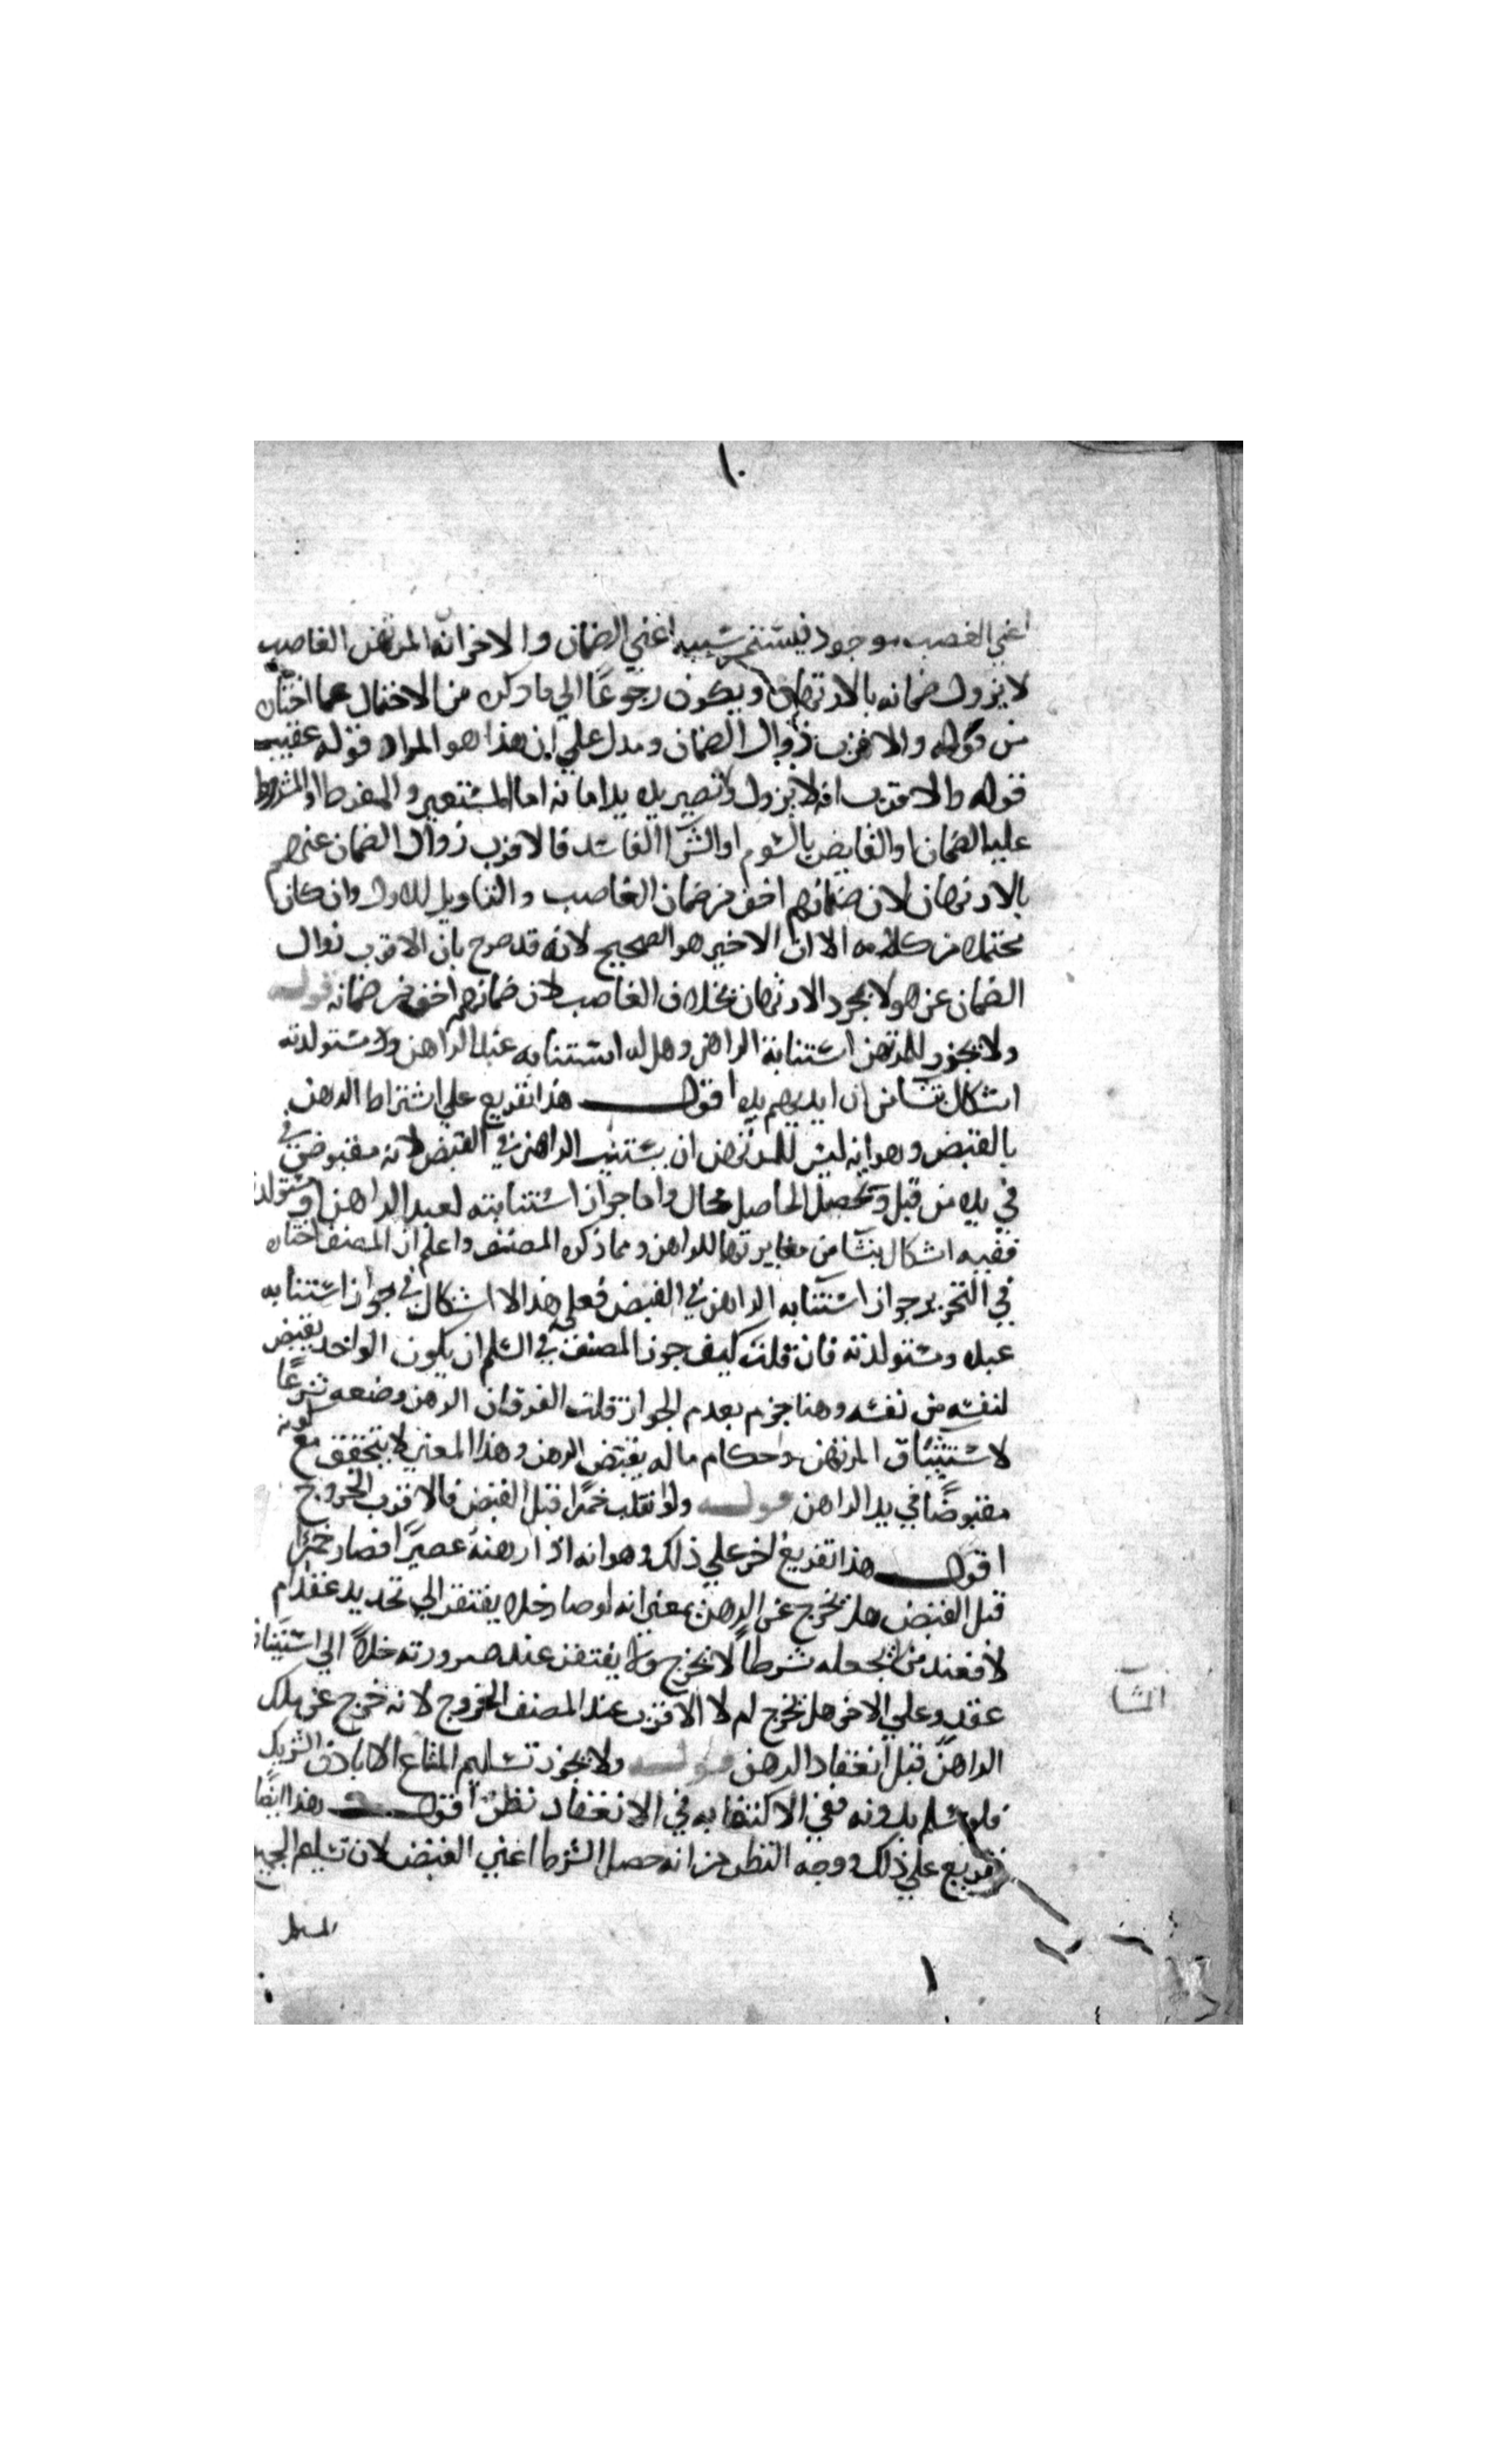 ١٠
اعني الغصب موجود فيستمر مسببه اعني الضمان والاخر انه المرتهن الغاصب
لا يزول ضمانه بالارتهان ويكون رجوعًا الي ما ذكره من الاحتمال عما اختاره
من قوله والاقرب زوال الضمان ويدل علي ان هذا هو المراد قوله عقيب
قوله والاقرب انه لا يزول ولا تصير يده يد امانه اما المستعير والمفرط او المشروط
عليه الضمان او القابض بالسوم او الشرا الفاسد فالاقرب زوال الضمان عنهم
بالارتهان لان ضمانهم اخف من ضمان الغاصب والتاويل للاول وان كان
محتمله من كلامه الا ان الاخير هو الصحيح لانه قد صرح بان الاقرب زوال
الضمان عن هولا بمجرد الارتهان بخلاف الغاصب لان ضمانهم اخف من ضمانه قوله
ولا يجوز للمرتهن استنابة الراهن وهل له استنابه عبد الراهن ومستولدته
اشكال ينشا من ان ايديهم يده اقول هذا تفريع علي اشتراط الرهن
بالقبض وهو انه ليس للمرتهن ان يستنيب الراهن في القبض لانه مقبوض في
في يده من قبل وتحصيل الحاصل محال واما جواز استنابته لعبد الراهن او مستولدته
ففيه اشكال ينشا من مغايرتهما للراهن ومما ذكره المصنف واعلم ان المصنف اختار
في التحرير جواز استنابه الراهن في القبض فعلي هذا لا اشكال في جواز استنابه
عبده ومستولدته فان قلت كيف جوز المصنف في السلم ان يكون الواحد يقبض
لنفسه من نفسه وهنا جزم بعدم الجواز قلت الفرق ان الرهن وضعه شرعًا
لاستيثاق المرتهن واحكام ماله بقبض الرهن وهذا المعني لا يتحقق مع كونه
مقبوضًا في يد الراهن قوله ولو انقلب خمرًا قبل القبض فالاقرب الخروج
اقول هذا تفريع اخر علي ذلك وهو انه اذا ارهنه عصيرًا فصار خمرًا
قبل القبض هل يخرج عن الرهن بمعني انه لو صار خلا يفتقر الي تجديد عقد ام
لا فعند من لم يجعله شرطًا لا يخرج ولا يفتقر عند صيرورته خلًا الي استيناف
عقد وعلي الاخر هل يخرج ام لا الاقرب عند المصنف الخروج لانه خرج عن ملك
الراهن قبل انعقاد الرهن قوله ولا يجوز تسليم المشاع الا باذن الشريك
فلو سلم بدونه ففي الاكتفا به في الانعقاد نظر اقول هذا ايضًا
تفريع علي ذلك ووجه النظر من انه حصل الشرط اعني القبض لان تسليم الجميع